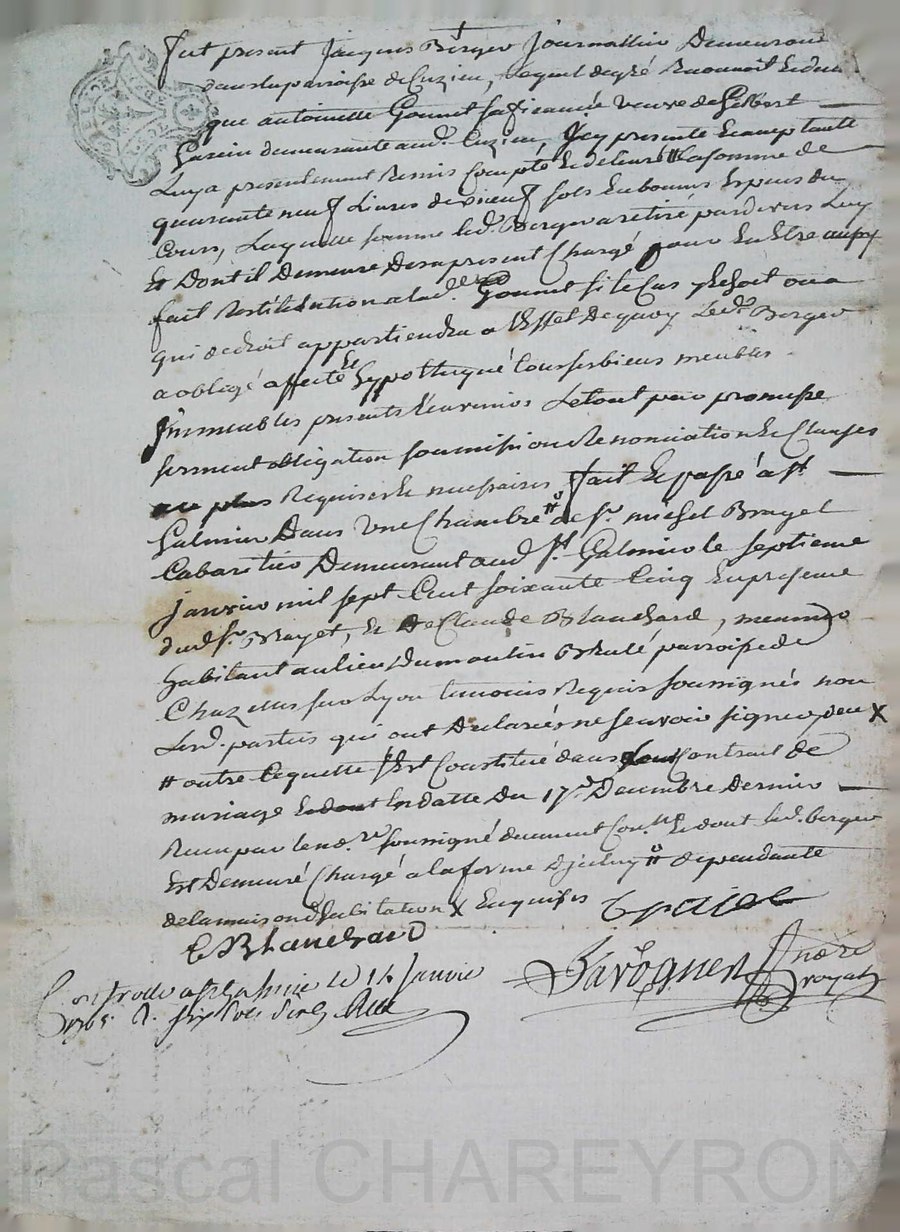 fut present Jacques Berger Journallier Demeurant
dans la parroisse de Cuzieu, Lequel de gré a Reconnoit
que antoinette Gonnet sa fiancée veuve de Gilbert
demeurante aud. Cuzieu, Icy presente Et acceptante
Luy a presentement Remis Compté Et delivré # La somme de
quarante neuf Livres dix neuf sols En bonnes Especes du
Cours, Laquelle somme led. Berger a retiré pardevers Luy
Et Dont il Demeure Des a present Chargé pour En Etre
fait Restitution a lad. Gonnet si le Cas y Echoit ou a
qui de droit appartiendra a l'Effet De quoy Led. Berger
a obligé affecté Et hypothequé tous ses biens meubles
Immeubles presents Et avenirs Le tout par promesse
serment obligation soumission Renonciation Et Clauses
Requises Et necessaires fait Et passé a St.
Galmier Dans Une Chambre # de Sr. michel Brayet
Cabaretier Demeurant aud. St. Galmier le septieme
janvier mil sept Cent soixante Cinq En presence
dud. Sr. Brayet, Et De Claude Blanchard, meunier
habitant au lieu Du moulin Brulé parroisse de
Chazelles sur Lyon temoins Requis soussignés non
Lesd. parties qui ont Declarées ne scavoir signer X
# outre Ce quelle s'Est Constitué dans Contrat de
mariage En datte Du 17e. Decembre Dernier
Receu par le no.re soussigné Et dont led. berger
Est Demeuré Chargé a la forme D'jceluy # dependante
de la maison D'habitation X Enquises
Brayet
C Blanchard
nore
royal
Controllé a St galmier le 14 Janvier
1765 R. six sols
Pascal CHAREYRON